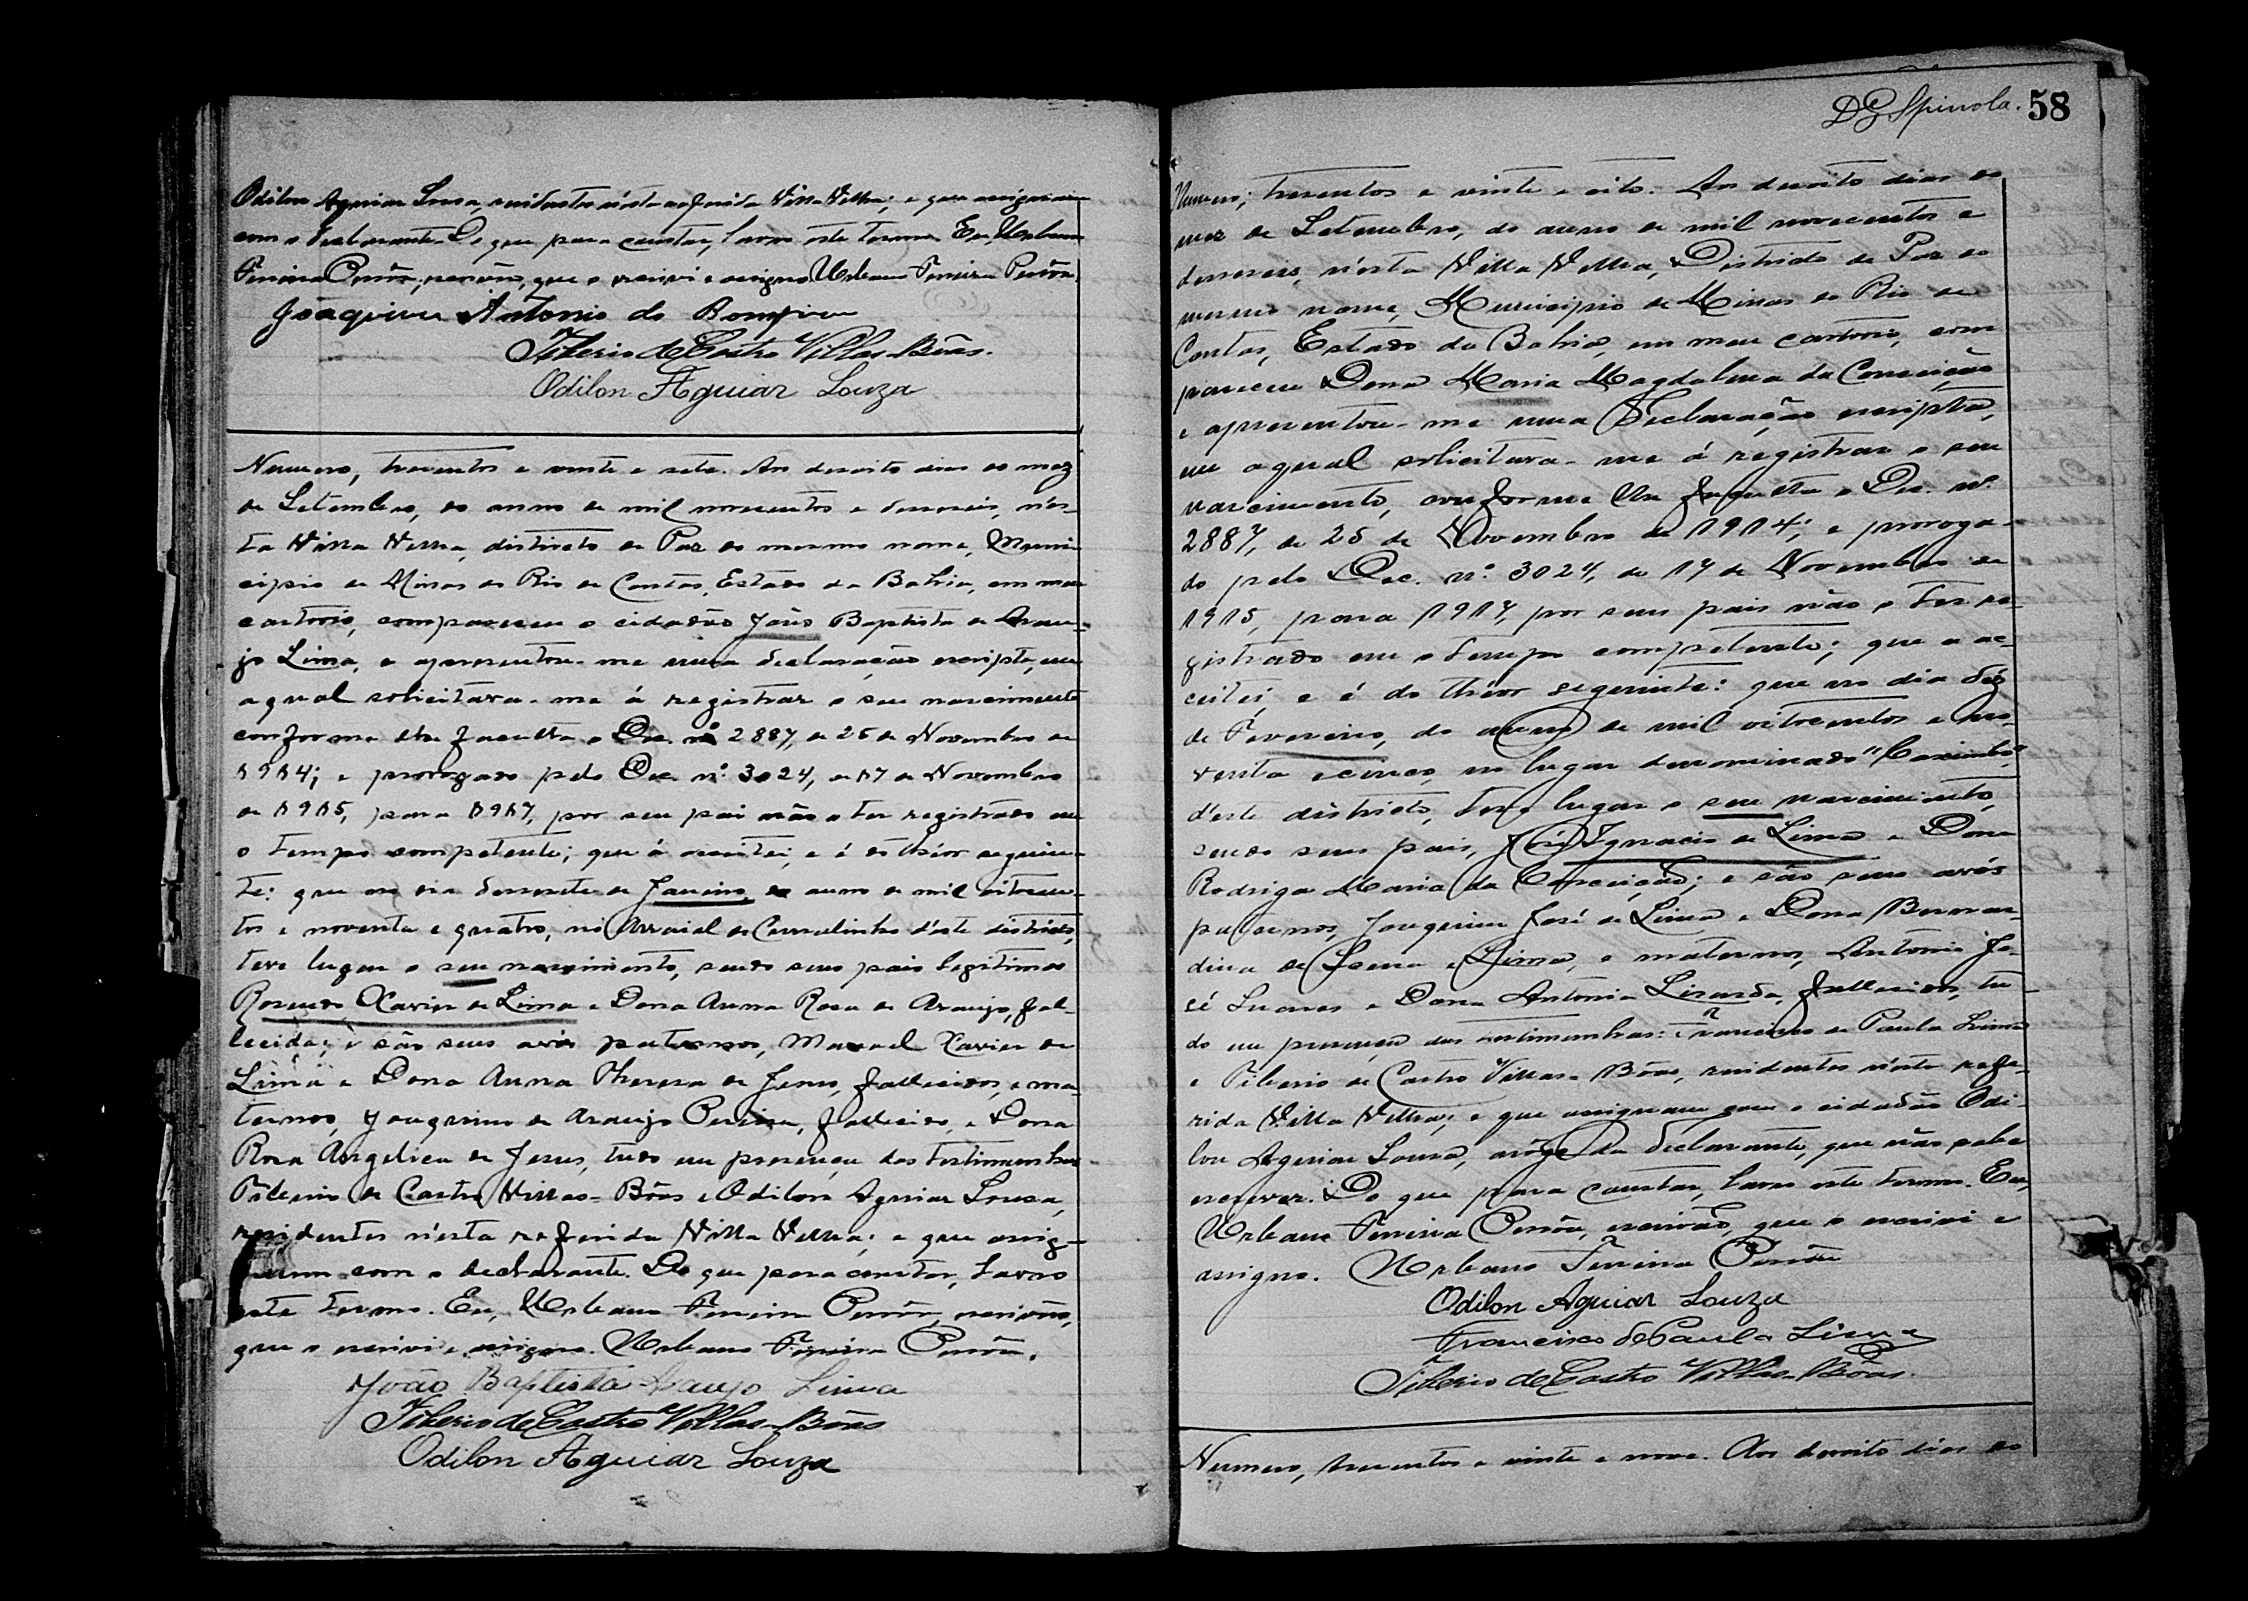 Odilon Aguiar Sousa, residentes n'esta referida Villa Velha; e que assignaram
com o declarante. Do que para constar, lavro este termo. Eu, Urbano
Ferreira, escrivão, que o escrivi e assigno. Urbano Ferreira
Joaquim Antonio do Bomfim
Tiberio de Castro Villas-Bôas.
Odilon Aguiar Souza
Numero, tresentos e vinte e sete. Aos desoito dias do mez
de Setembro, do anno de mil novecentos e deseseis, n'es-
ta Villa Velha, districto de Paz do mesmo nome, Muni-
cipio de Minas do Rio de Contas, Estado da Bahia, em meu
cartorio, compareceu o cidadão João Baptista de Arau-
jo Lima, e apresentou-me uma declaração escripta, em
a qual solicitava-me á registrar o seu nascimento
conforme lhe faculta o Dec. nº 2887, de 25 de Novembro de
1914; e prorogado pelo Dec. nº. 3024, de 17 de Novembro
de 1915, para 1917, por seu pai não o ter registrado em
o tempo competente; que á aceitei, e é do theor seguin-
te: que no dia desesete de Janeiro, do anno de mil oitocen-
tos e noventa e quatro, no Arraial do Curralinho d'este districto,
teve lugar o seu nascimento, sendo seus pais legitimos
Rosendo Xavier de Lima e Dona Anna Rosa de Araujo, fal-
lecida; e são seus avós paternos, Manoel Xavier de
Lima e Dona Anna Thereza de Jesus, fallecidos, e ma-
ternos, Joaquim de Araujo Pereira, fallecido, e Dona
Rosa Angelica de Jesus, tudo em presença das testimunhas
Tiberio de Castro Villas-Bôas e Odilon Aguiar Sousa,
residentes n'esta referida Villa Velha; e que assig-
naram com o declarante. Do que para constar, lavro
este termo. Eu, Urbano Ferreira, escrivão,
que o escrivi e assigno. Urbano Ferreira
João Baptista Araujo Lima
Tiberio de Castro Villas-Bôas
Odilon Aguiar Souza
D G Spinola. 58
Numero, tresentos e vinte e oito. Aos desoito dias do
mez de Setembro, do anno de mil novecentos e
deseseis, n'esta Villa Velha, Districto de Paz do
mesmo nome, Municipio de Minas do Rio de
Contas, Estado da Bahia, em meu cartorio, com
pareceu Dona Maria Magdalena da Conceição
e apresentou-me uma Declaração escripta,
em a qual solicitava-me á registrar o seu
nascimento, conforme lhe faculta o Dec. nº.
2887, de 25 de Novembro de 1914; e proroga-
do pelo Dec. nº. 3024, de 17 de Novembro de
1915, para 1917, por seus pais não o ter re-
gistrado em o tempo competente; que a ac-
ceitei, e é do theor seguinte: que no dia dez
de Fevereiro, do anno de mil oitocentos e no-
venta e cinco, no lugar denominado
d'este districto, teve lugar o seu nascimento,
sendo seus pais, José Ignacio de Lima e Dona
Rodriga Maria da Conceição; e são seus avós
paternos, Joaquim José de Lima e Dona Bernar-
dina de Sena e Lima, e maternos, Antonio Jo-
sé Soares e Dona Antonia Lisarda, fallecidos, tu-
do em presença das testimunhas: Francisco de Paula Lima
e Tiberio de Castro Villas-Bôas, residentes n'esta refe-
rida Villa Velha; e que assignam com o cidadão Odi-
lon Aguiar Sousa, arôgo da declarante, que não sabe
escrever. Do que para constar, lavro este termo. Eu,
Urbano Ferreira, escrivão, que o escrivi e
assigno. Urbano Ferreira
Odilon Aguiar Souza
Francisco de Paula Lima
Tiberio de Castro Villas-Bôas.
Numero, tresentos e vinte e nove. Aos desoito dias do